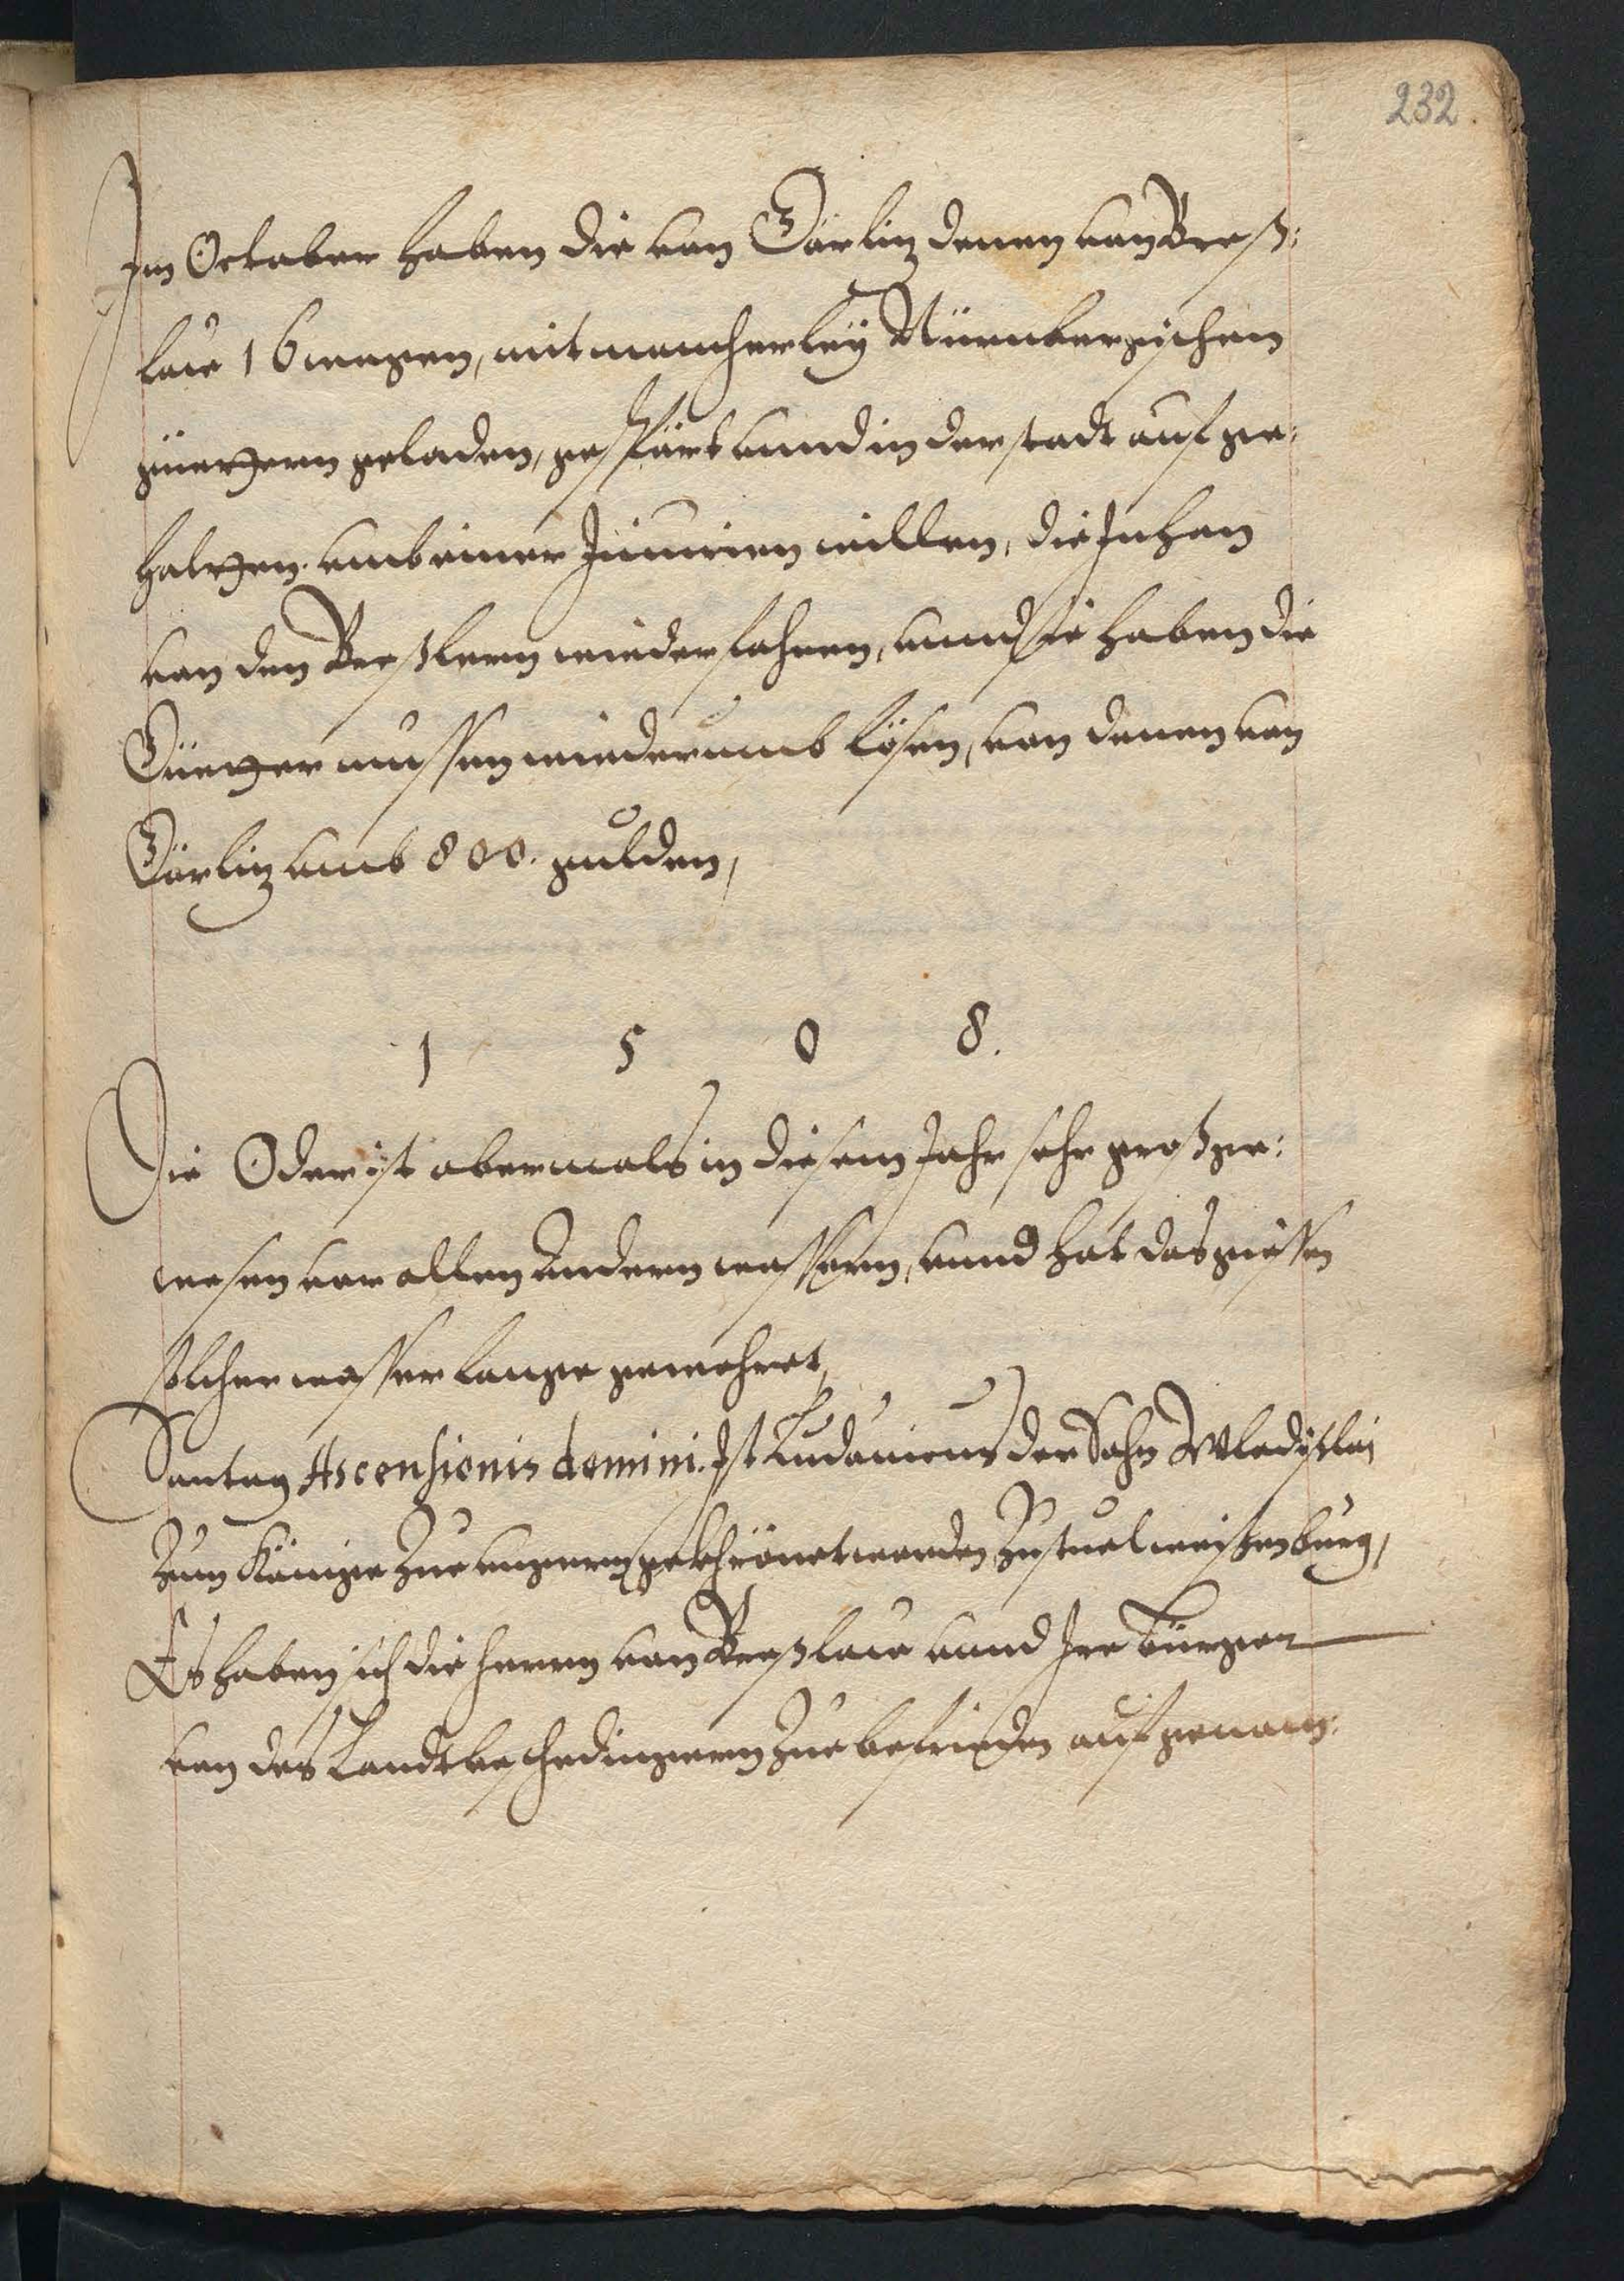 232.
Im October haben die von Görlitz denen von Breß:
law 16 wagen, mit mancherley Nürnbergischen
güettern geladen, gespärt vnnd in der stadt auf ge:
halten. vmb einer Iniurien willen, die Inhen
von den Breßlern wiederfahren, vnnd sie haben die
Güetter mussen wiederumb lösen, von denen von
Görlitz vmb 800. gulden,
1 5 0 8.
Die Oder ist abermals in diesem Jahr sehr groß ge:
wesen vor allen Andern wassern, vnnd hat das giessen
solcher wasser lange gewehret,
Sontag Ascensionis domini. Ist Ludouicus der Sohn Wladislai
Zum Könige Zue vngern gekhrönet worden, Zu stuel weissenburg,
Es haben sich die herrn von Breßlaw vnnd Ire Bürger
von des Landtbeschedingern Zue befrieden auf genom: